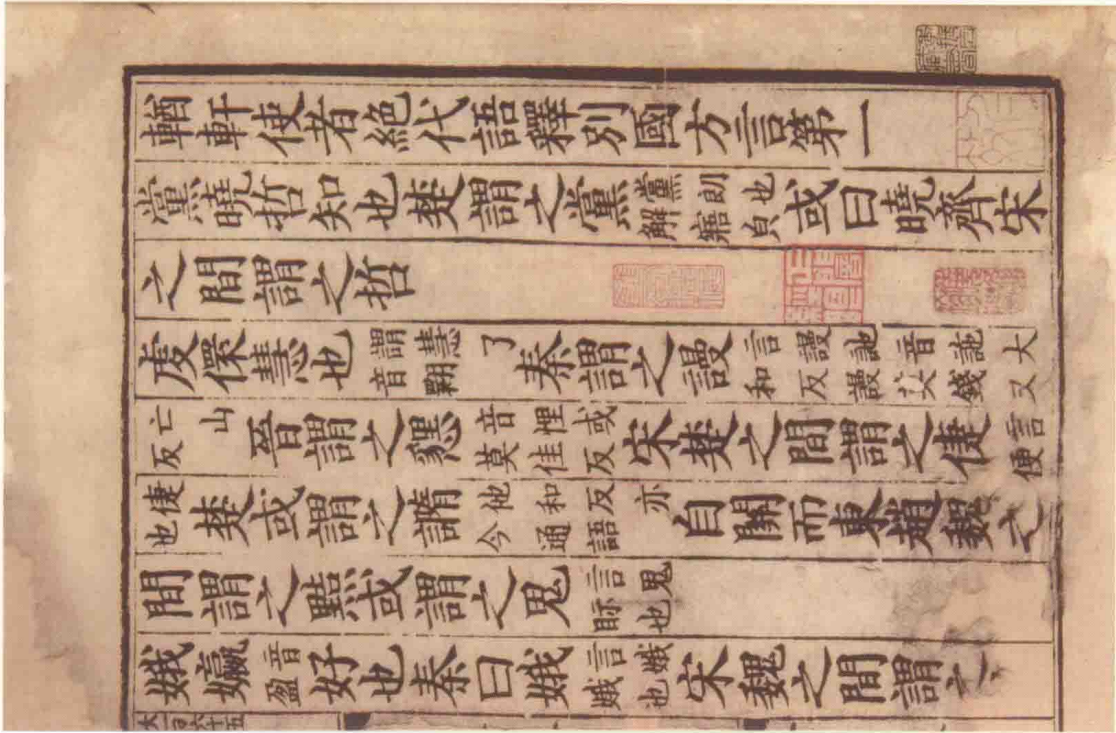 輶軒使者絕代語釋別國方言第一
黨曉哲知也楚謂之黨黨朗也解寤皃或曰曉齊宋
之間謂之哲
虔儇慧也謂慧了音翾秦謂之謾言謾訑音訑大和反謾莫錢又
亡山反晉謂之㦟音悝或莫佳反宋楚之間謂之倢言便
倢也楚或謂之䜏他和反亦今通語自關而東趙魏之
間謂之黠或謂之鬼言鬼眎也
娥㜲音盈好也秦曰娥言娥娥也宋魏之間謂之